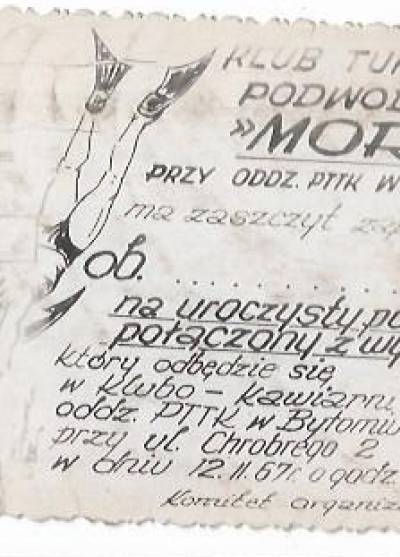 KLUB TUR
PODWOD
»MOR
PRZY ODDZ. PTTK W
ma zaszczyt zap
ob. . . . . . . . . . .
na uroczysty po
połączony z wy
który odbędzie się
w Klubo - Kawiarni
oddz. PTTK w Bytomiu
przy ul. Chrobrego 2
w dniu 12.II.67r. o godz.
Komitet organiza